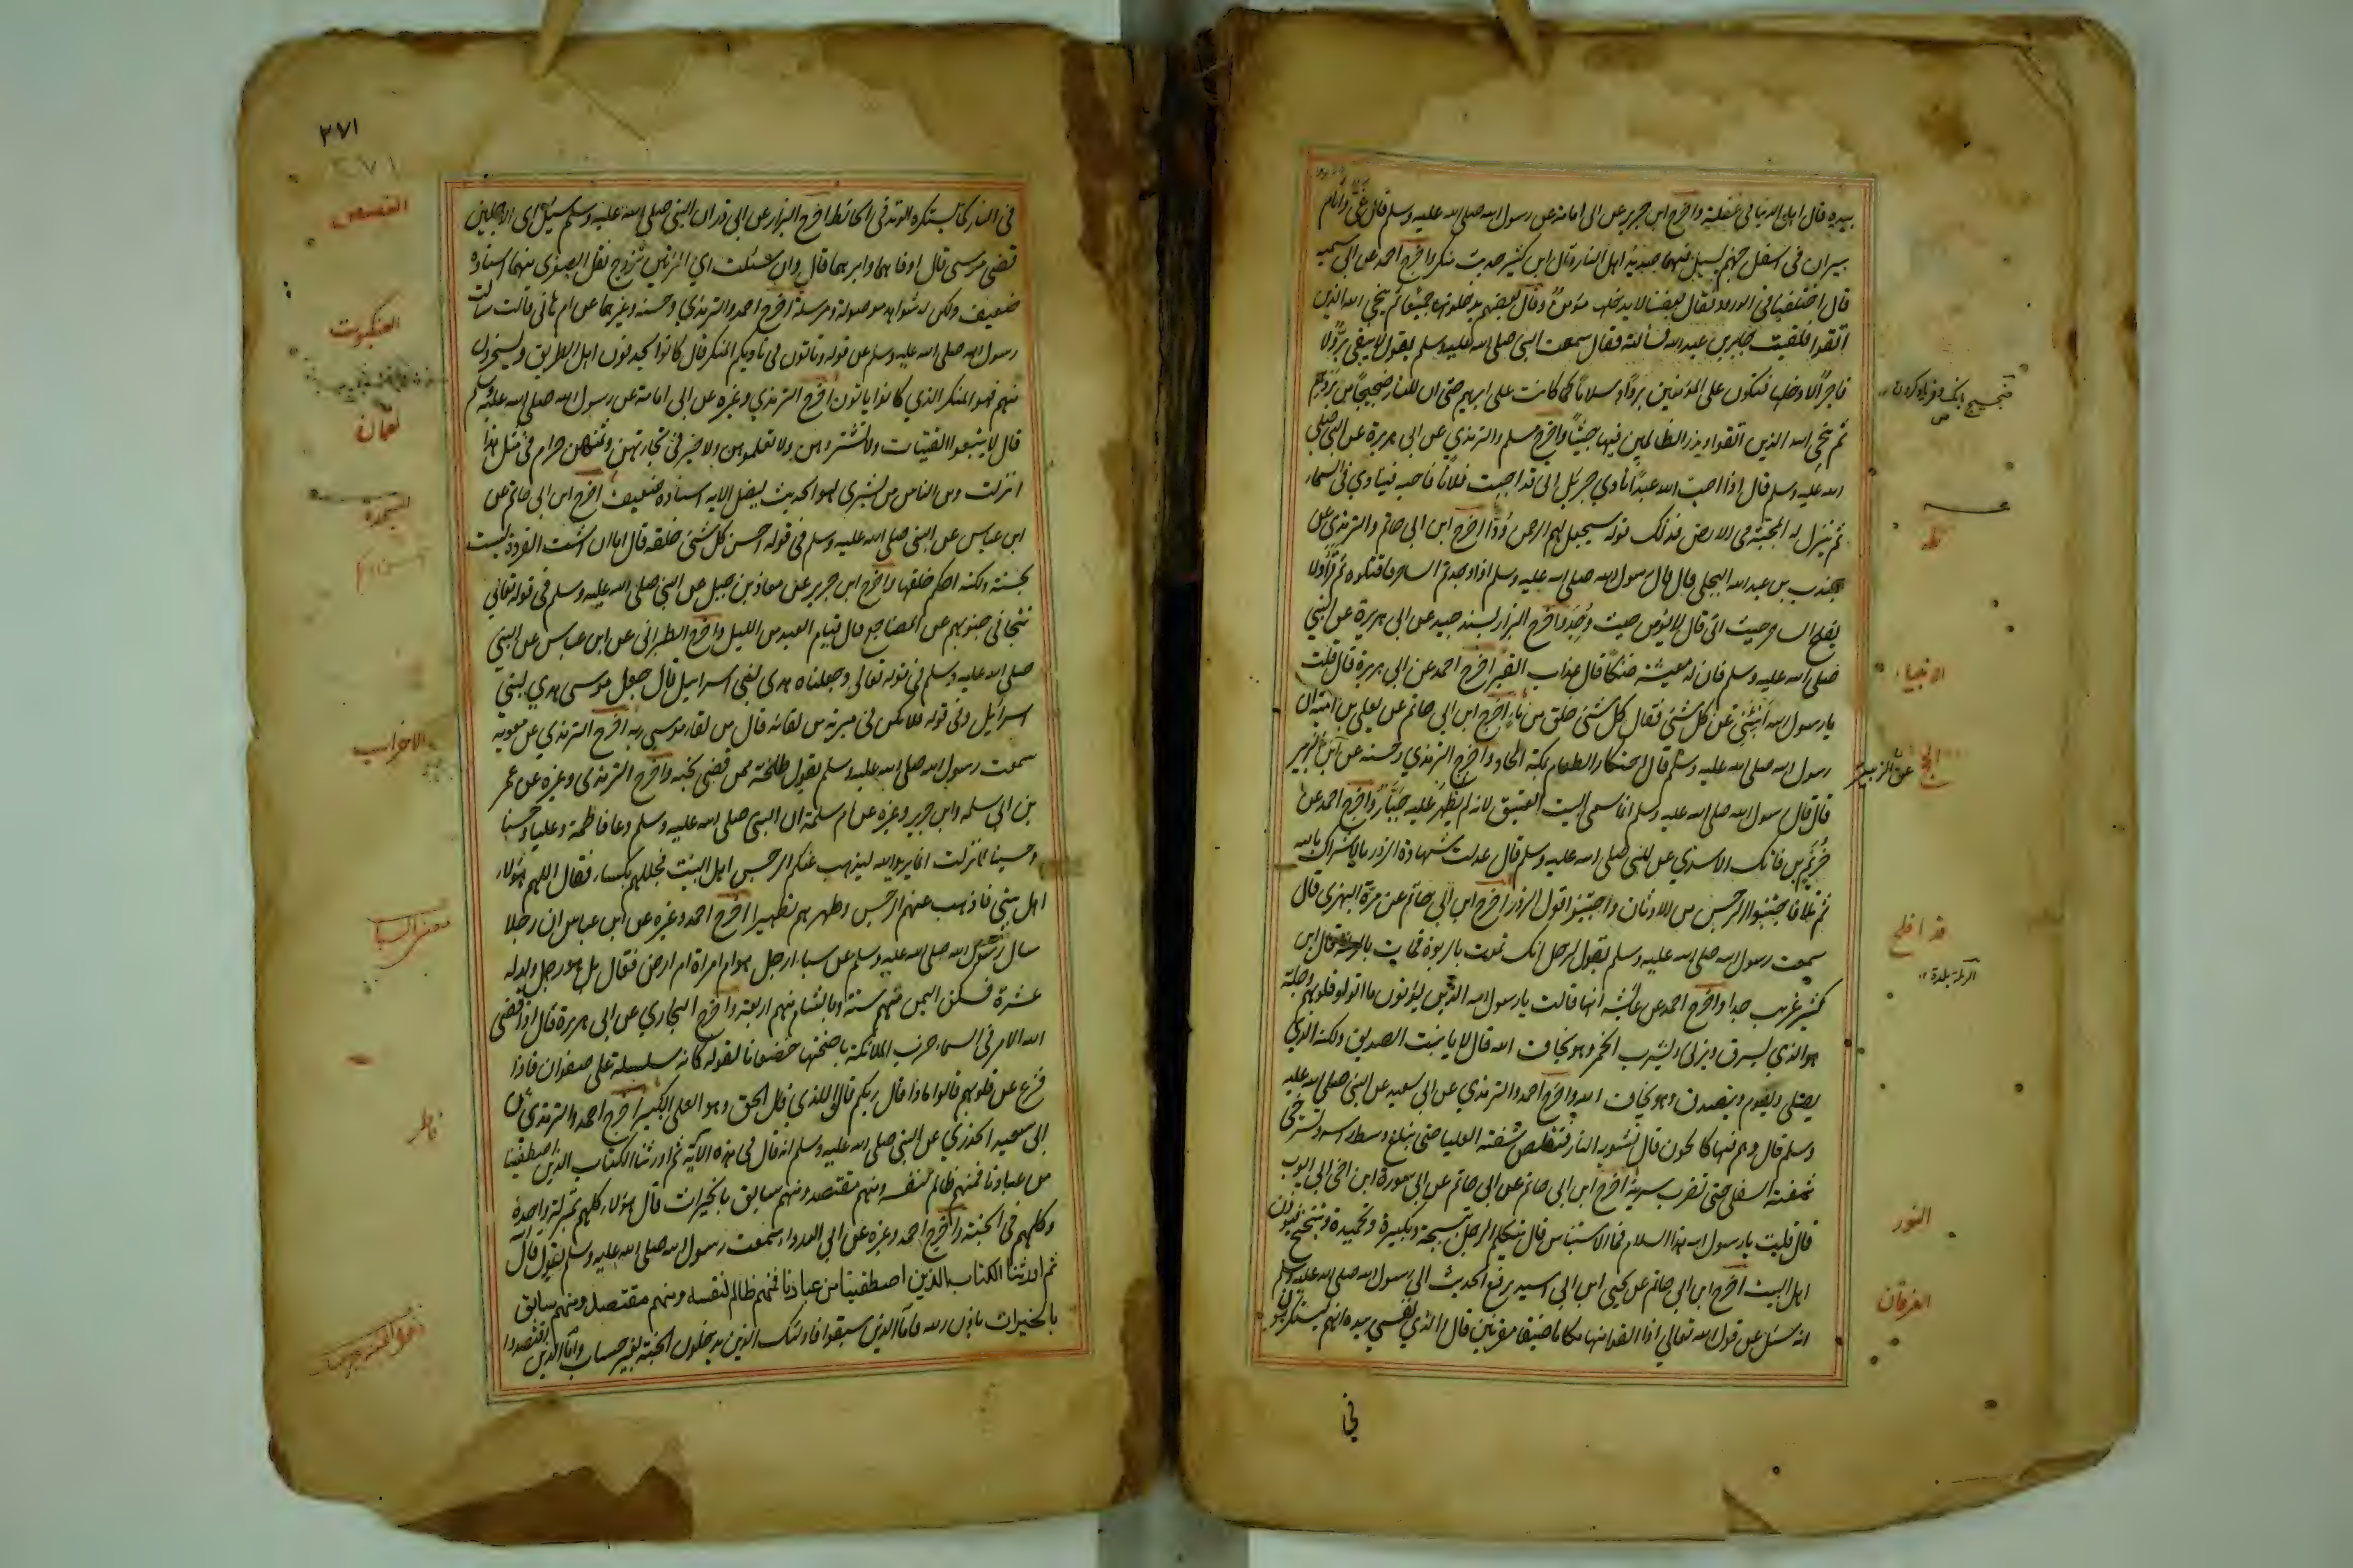 بيده قال اهل الدنيا في غفلة واخرج ابن جرير عن ابي امامة عن رسول الله صلى الله عليه وسلم قال غي واثام
بيران في اسفل جهنم يسيل فيهما صديد اهل النار وقال ابن كثير حديث منكر واخرج احمد عن ابي سمية
قال اختلفنا في الورود فقال بعضنا لا يدخلها مؤمن وقال بعضهم يدخلونها جميعا ثم ينجي الله الذين
اتقوا فلقيت جابر بن عبد الله فسألته فقال سمعت النبي صلى الله عليه وسلم يقول لا يبقى بر ولا
فاجر الا دخلها فتكون على المؤمنين بردا وسلاما كما كانت على ابرهيم حتى ان للنار ضجيجا من بردهم
ثم ينجي الله الذين اتقوا ويذر الظالمين فيها جثيا واخرج مسلم والترمذي عن ابي هريرة عن النبي صلى
الله عليه وسلم قال اذا احب الله عبدا نادي جبرئيل اني قد احببت فلانا فاحبه فينادي في السماء
ثم ينزل له المحبة في الارض فذلك قوله سيجعل لهم الرحمن ودا اخرج ابن ابي حاتم والترمذي عن
جندب بن عبد الله البجلي قال قال رسول الله صلى الله عليه وسلم اذا وجدتم الساحر فاقتلوه ثم قرأ ولا
يفلح الساحر حيث اتى قال لا يؤمن حيث وجد واخرج البزار بسند جيد عن ابي هريرة عن النبي
صلى الله عليه وسلم فان له معيشة ضنكا قال عذاب القبر اخرج احمد عن ابي هريرة قال قلت
يا رسول الله انبئني عن كل شئ فقال كل شئ خلق من ماء اخرج ابن ابي حاتم عن يعلي بن امية ان
رسول الله صلى الله عليه وسلم قال احتكار الطعام بمكة الحاد واخرج الترمذي وحسنه عن ابن الزبير
قال قال رسول الله صلى الله عليه وسلم انما سمي البيت العتيق لانه لم يظهر عليه جبار واخرج احمد عن
خريم بن فاتك الاسدي عن النبي صلى الله عليه وسلم قال عدلت شهادة الزور بالاشراك بالله
ثم تلا فاجتنبوا الرجس من الاوثان واجتنبوا قول الزور اخرج ابن ابي حاتم عن مرة البهزي قال
سمعت رسول الله صلى الله عليه وسلم يقول لرجل انك تموت بالربوة فمات بالرملة قال ابن
كثير غريب جدا واخرج احمد عن عائشة انها قالت يا رسول الله الذين يؤتون ما اتوا وقلوبهم وجلة
هو الذي يسرق ويزني ويشرب الخمر وهو يخاف الله قال لا يا بنت الصديق ولكنه الذي
يصلي ويصوم ويتصدق وهو يخاف الله واخرج احمد والترمذي عن ابي سعيد عن النبي صلى الله عليه
وسلم قال وهم فيها كالحون قال تشويه النار فتقلص شفته العليا حتى تبلغ وسط راسه وتسترخي
شفته السفلى حتى تضرب سرته اخرج ابن ابي حاتم عن ابي سورة ابن اخي ابي ايوب
قال قلت يا رسول الله هذا السلام فما الاستيناس قال يتكلم الرجل تسبيحة وتكبيرة وتحميدة ويتنحنح فيوذن
اهل البيت اخرج ابن ابي حاتم عن يحيى ابن ابي اسيد يرفع الحديث الي رسول الله صلى الله عليه وسلم
انه سئل عن قول الله تعالي اذا القوا منها مكانا ضيقا مقرنين قال والذي نفسي بيده انهم ليستكرهون
في
طه
الانبياء
الحج
عن الزبير
قد افلح
الرملة بلدة
النور
الفرقان
٣٧١
٣٧١
في النار كما يستكره الوتد في الحائط اخرج البزار عن ابي ذر ان النبي صلى الله عليه وسلم سئل اي الاجلين
قضى موسى قال اوفاهما وابرهما قال وان سئلت اي المرتين تزوج فقل الصغرى منهما اسناده
ضعيف ولكن له شواهد موصولة ومرسلة اخرج احمد والترمذي وحسنه وغيرهما عن ام هاني قالت سالت
رسول الله صلى الله عليه وسلم عن قوله وتاتون في ناديكم المنكر قال كانوا يحذفون اهل الطريق ويسخرون
منهم فهو المنكر الذي كانوا ياتون اخرج الترمذي وغيره عن ابي امامة عن رسول الله صلى الله عليه وسلم
قال لا تبيعوا القينات ولا تشتروهن ولا تعلموهن ولا خير في تجارتهن وثمنهن حرام في مثل هذا
انزلت ومن الناس من يشترى لهو الحديث ليضل الايه اسناده ضعيف اخرج ابن ابي حاتم عن
ابن عباس عن النبي صلى الله عليه وسلم في قوله احسن كل شئ خلقه قال اما ان است القردة ليست
بحسنة ولكنه احكم خلقها واخرج ابن جرير عن معاذ بن جبل عن النبي صلى الله عليه وسلم في قوله تعالى
تتجافى جنوبهم عن المضاجع قال قيام العبد من الليل واخرج الطبراني عن ابن عباس عن النبي
صلى الله عليه وسلم في قوله تعالى وجعلناه هدى لبني اسرائيل قال جعل موسى هدي لبني
اسرائيل وفي قوله فلا تكن في مرية من لقائه قال من لقاء موسى ربه اخرج الترمذي عن معوية
سمعت رسول الله صلى الله عليه وسلم يقول طلحة ممن قضى نحبه واخرج الترمذي وغيره عن عمر
بن ابي سلمه وابن جرير وغيره عن ام سلمة ان النبي صلى الله عليه وسلم دعا فاطمة وعليا وحسنا
وحسينا لما نزلت انما يريد الله ليذهب عنكم الرجس اهل البيت فجللهم بكساء فقال اللهم هؤلاء
اهل بيتي فاذهب عنهم الرجس وطهرهم تطهيرا اخرج احمد وغيره عن ابن عباس ان رجلا
سال رسول الله صلى الله عليه وسلم عن سبا ارجل هو ام امراة ام ارض فقال بل هو رجل ولد له
عشرة فسكن اليمن منهم ستة وبالشام منهم اربعة واخرج البخاري عن ابي هريرة قال اذا قضى
الله الامر في السماء ضربت الملائكة باجنحتها خضعانا لقوله كانه سلسلة على صفوان فاذا
فزع عن قلوبهم قالوا ماذا قال ربكم قالوا للذي قال الحق وهو العلي الكبير اخرج احمد والترمذي عن
ابي سعيد الخدري عن النبي صلى الله عليه وسلم انه قال في هذه الآية ثم اورثنا الكتاب الذين اصطفينا
من عبادنا فمنهم ظالم لنفسه ومنهم مقتصد ومنهم سابق بالخيرات قال هؤلاء كلهم بمنزلة واحدة
وكلهم في الجنة واخرج احمد وغيره عن ابي الدرداء سمعت رسول الله صلى الله عليه وسلم يقول قال
ثم اورثنا الكتاب الذين اصطفينا من عبادنا فمنهم ظالم لنفسه ومنهم مقتصد ومنهم سابق
بالخيرات باذن الله فاما الذين سبقوا فاولئك الذين يدخلون الجنة بغير حساب واما الذين اقتصدوا
القصص
العنكبوت
لقمان
السجدة
الاحزاب
السبا
فاطر